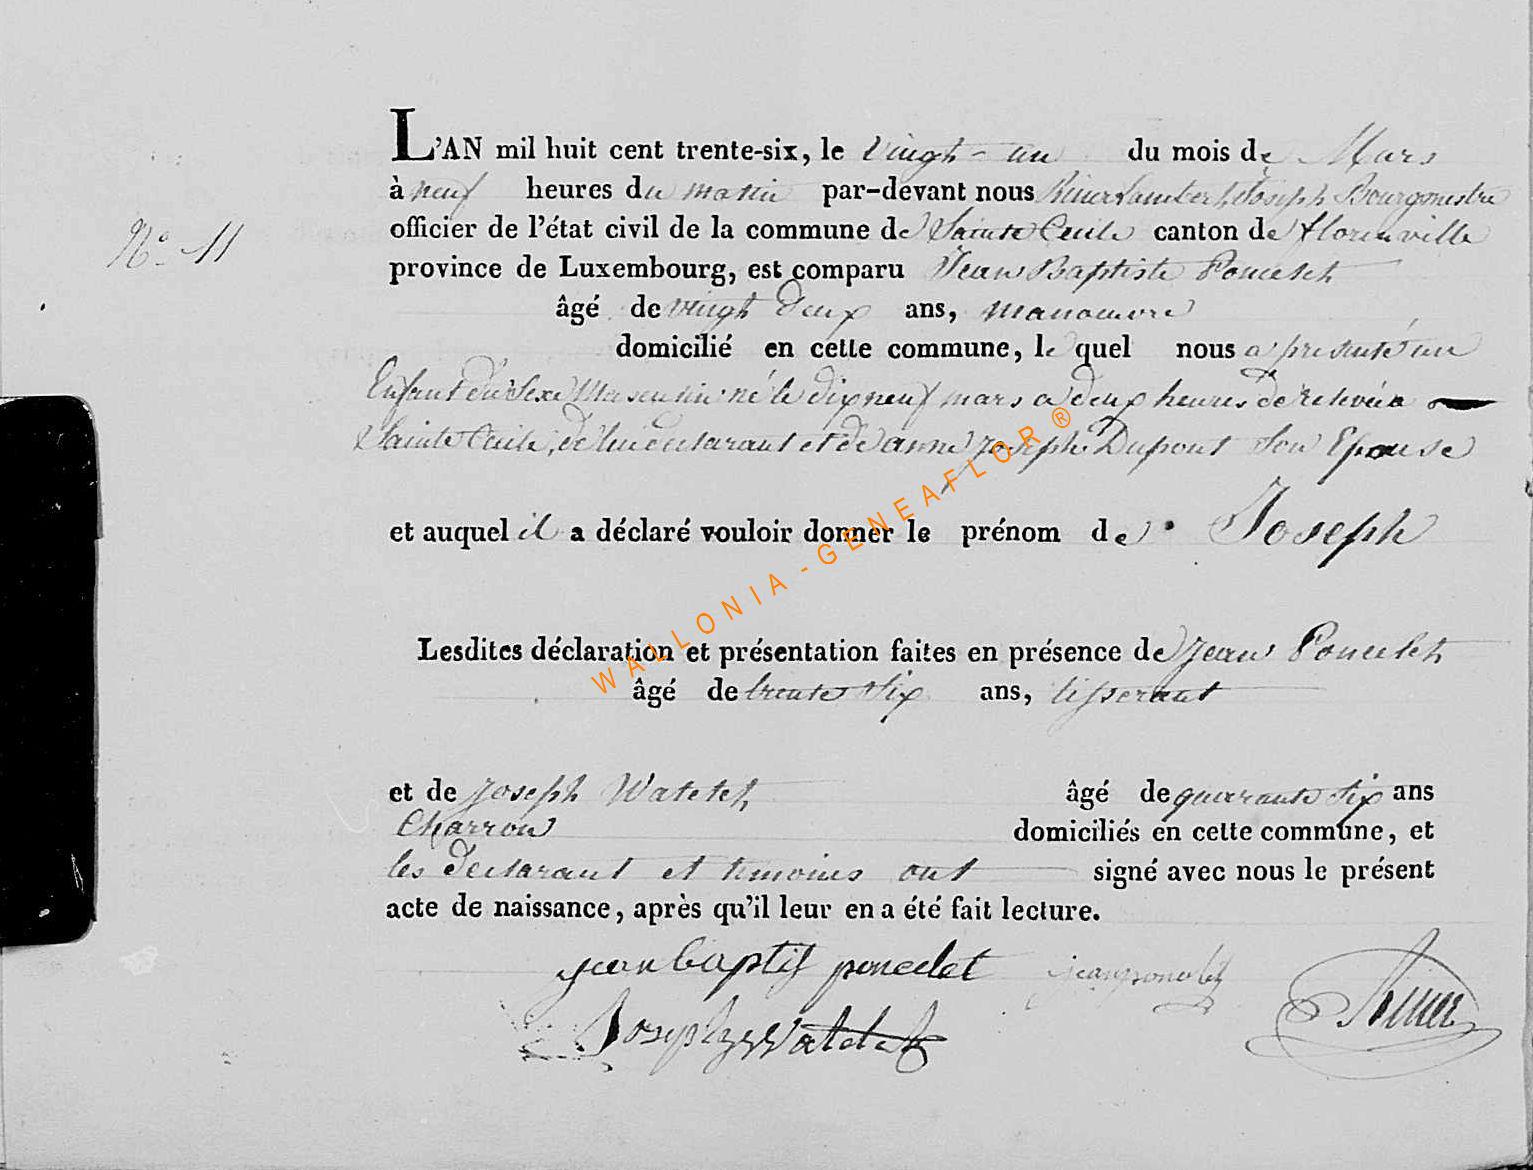 L'AN mil huit cent trente-six, le vingt-un du mois de Mars
à neuf heures du matin par-devant nous Riner Lambert Joseph Bourgmestre
N° 11
officier de l'état civil de la commune de Sainte Cecile canton de florenville
province de Luxembourg, est comparu Jean Baptiste Poncelet
âgé de vingt deux ans, manoeuvre
domicilié en cette commune, le quel nous a présenté un
Enfant du Sexe Masculin né le dix neuf mars a deux heures de relevée a
Sainte Cecile, de lui declarant et de anne Joseph Dupont son Epouse
et auquel il a déclaré vouloir donner le prénom de Joseph
Lesdites déclaration et présentation faites en présence de Jean Poncelet
âgé de trente six ans, tisserant
et de Joseph Watelet âgé de quarante six ans
Charron domiciliés en cette commune, et
les declarant et temoins ont signé avec nous le présent
acte de naissance, après qu'il leur en a été fait lecture.
jean baptis poncelet jean poncelet
Joseph Watelet Riner
WALLONIA - GENEAFLOR ®